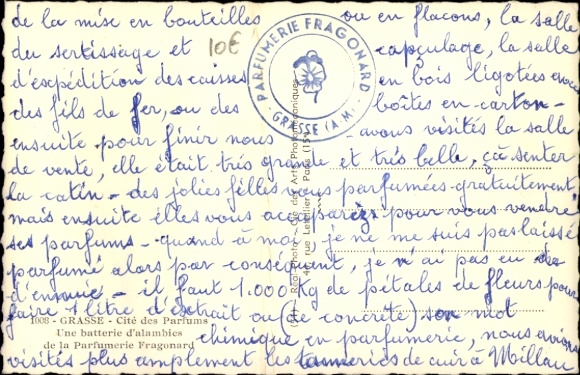 de la mise en bouteilles ou en flacons, la salle
du sertissage et 10€ capçulage, la salle
d'expédition des caisses en bois ligotées avec
des fils de fer, ou des boîtes en carton -
ensuite pour finir nous avons visités la salle
de vente, elle était très grande et très belle, çà senter
la catin - des jolies filles vous parfumées gratuitement
mais ensuite elles vous accaparèz pour vous vendre
ses parfums - quand à moi je ne me suis pas laissé
parfumé alors par conséquent, je n'ai pas eu
d'ennuie - il faut 1.000 kg de pétales de fleurs pour
faire 1 litre d'extrait ou (de concrète) son mot
chimique en parfumerie, nous avons
visités plus amplement les tanneries de cuir à Millau
PARFUMERIE FRAGONARD
- GRASSE (A.M) -
1008 - GRASSE - Cité des Parfums
Une batterie d'alambics
de la Parfumerie Fragonard
Réal-Photo - Cie des Arts Photomécaniques
rue Letellier - Paris (15e)